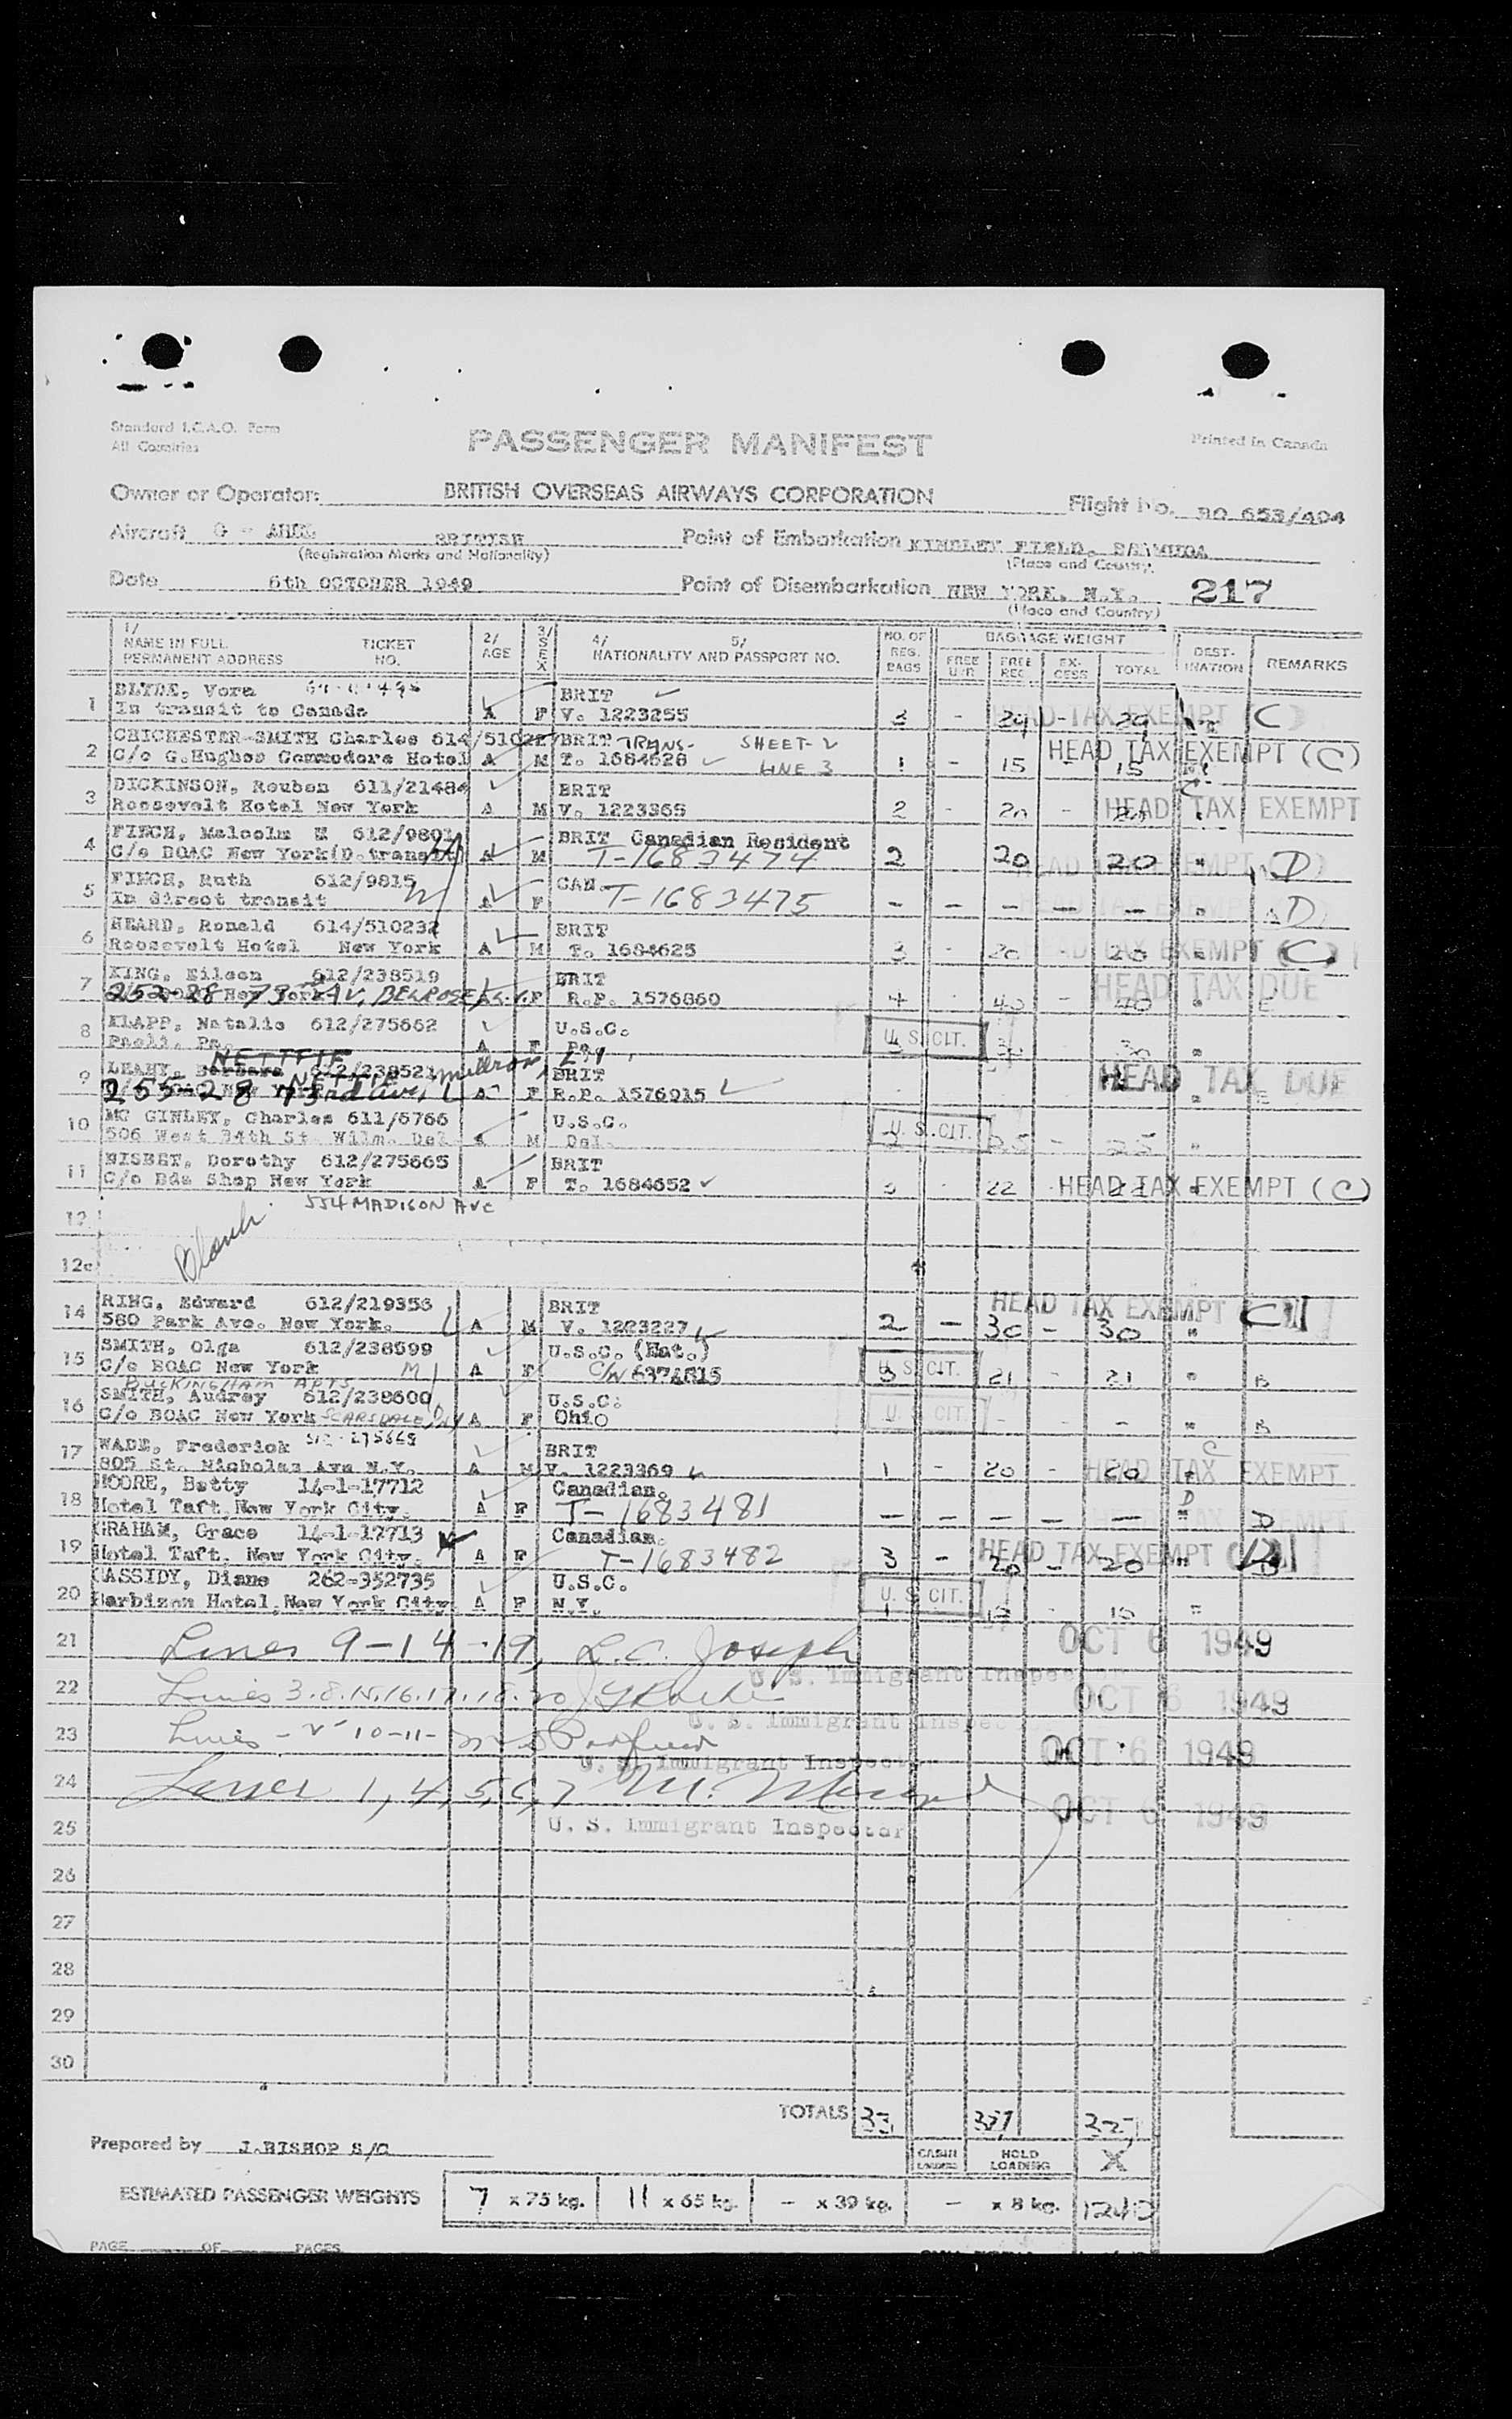 Standard I.C.A.O. Form
All Countries
PASSENGER MANIFEST
Printed in Canada
Owner or Operator: BRITISH OVERSEAS AIRWAYS CORPORATION
Flight No. BO 653/404
Aircraft G - BRITISH
Point of Embarkation KINDLEY FIELD, BERMUDA
(Registration Marks and Nationality)
(Place and Country)
Date 6th OCTOBER 1949
Point of Disembarkation NEW YORK, N.Y. 217
(Place and Country)
1/ NAME IN FULL PERMANENT ADDRESS TICKET NO. 2/ AGE 3/ SEX 4/ 5/ NATIONALITY AND PASSPORT NO. NO. OF REG. BAGS BAGGAGE WEIGHT FREE REG EX-CESS TOTAL DEST-INATION REMARKS
1 Vera BRIT
In transit to Canada A F V. 1223255 3 - 29 - 29 HEAD TAX EXEMPT (C)
2 CHICHESTER-SMITH Charles BRIT TRANS- SHEET-2
C/o G.Hughes Commodore Hotel A M T. 1684628 LINE 3 1 - 15 - 15 HEAD TAX EXEMPT (C)
3 DICKINSON, Reuben 611/21484 BRIT
Roosevelt Hotel New York A M V. 1223365 2 - 20 - 20 HEAD TAX EXEMPT
4 FINCH, Malcolm H 612/9801 BRIT Canadian Resident
C/o BOAC New York(D.transit) A M T-1683474 2 20 20 " D
5 FINCH, Ruth 612/9815 CAN.
In direct transit A F T-1683475 - - - - - " D
6 HEARD, Ronald 614/510232 BRIT
Roosevelt Hotel New York A M T. 1684625 3 - 20 - 20 HEAD TAX EXEMPT (C)
7 KING, Eileen 612/238519 BRIT
252-28 73rd AV, BELROSE, L.I. F R.P. 1576860 4 - 40 - 40 " HEAD TAX DUE E
8 KLAPP, Natalie 612/275662 U.S.C.
Paoli. Pa. A F Pa. U.S. CIT.
NETTFIE
9 LEAHY, Barbara 612/238521 BRIT
255-28 73rd Ave, A F R.P. 1576915 HEAD TAX DUE E
10 Mc GINLEY, Charles 611/6766 U.S.C.
506 West 34th St Wilm. Del A M Del. U.S. CIT. 25 - 25 "
11 NISBET, Dorothy 612/275665 BRIT
C/o Bda Shop New York A F T. 1684652 - 22 HEAD TAX EXEMPT (C)
12 554 MADISON AVE
Blank
14 RING, Edward 612/219356 BRIT
580 Park Ave. New York. A M V. 1223227 2 - 30 - 30 " HEAD TAX EXEMPT C
15 SMITH, Olga 612/238599 U.S.C. (Nat.)
C/o BOAC New York A F U.S. CIT. 21 - 21 " B
BUCKINGHAM APTS
16 SMITH, Audrey 612/238600 U.S.C.
C/o BOAC New York SCARSDALE, NY A F Ohio U.S. CIT. - - - " B
17 WADE, Frederick BRIT
805 St. Nicholas Ave N.Y. A M V. 1223369 1 - 20 - 20 HEAD TAX EXEMPT C
18 MOORE, Betty 14-1-17712 Canadian.
Hotel Taft, New York City. A F T-1683481 - - - - - " D
19 GRAHAM, Grace 14-1-17713 Canadian.
Hotel Taft, New York City. A F T-1683482 3 - 20 - 20 " HEAD TAX EXEMPT
20 CASSIDY, Diane 262-352735 U.S.C.
Barbizon Hotel, New York City A F N.Y. 1 U.S. CIT.
21 Lines 9-14-19, L.C. Joseph OCT 6 1949
U. S. Immigrant Inspector
22 Lines 3.8.15.16.17.18.20 OCT 6 1949
U. S. Immigrant Inspector
23 Lines - 2 10-11- OCT 6 1949
U. S. Immigrant Inspector
24 Lines 1, 4, 5, 6, 7 M. OCT 6 1949
25 U. S. Immigrant Inspector
26
27
28
29
30
TOTALS 33 327 327
Prepared by J.BISHOP S/O
CABIN HOLD LOADING X
ESTIMATED PASSENGER WEIGHTS 7 x 75 kg. 11 x 65 kg. - x 39 kg. - x 8 kg. 1240
PAGE OF PAGES